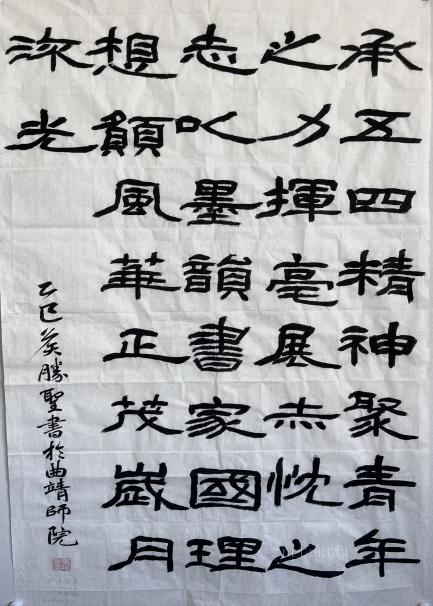 承五四精神聚青年
之力揮毫展赤忱之
志以墨韻書家國理
想願風華正茂歲月
流光
乙巳勝聖書於曲靖師院